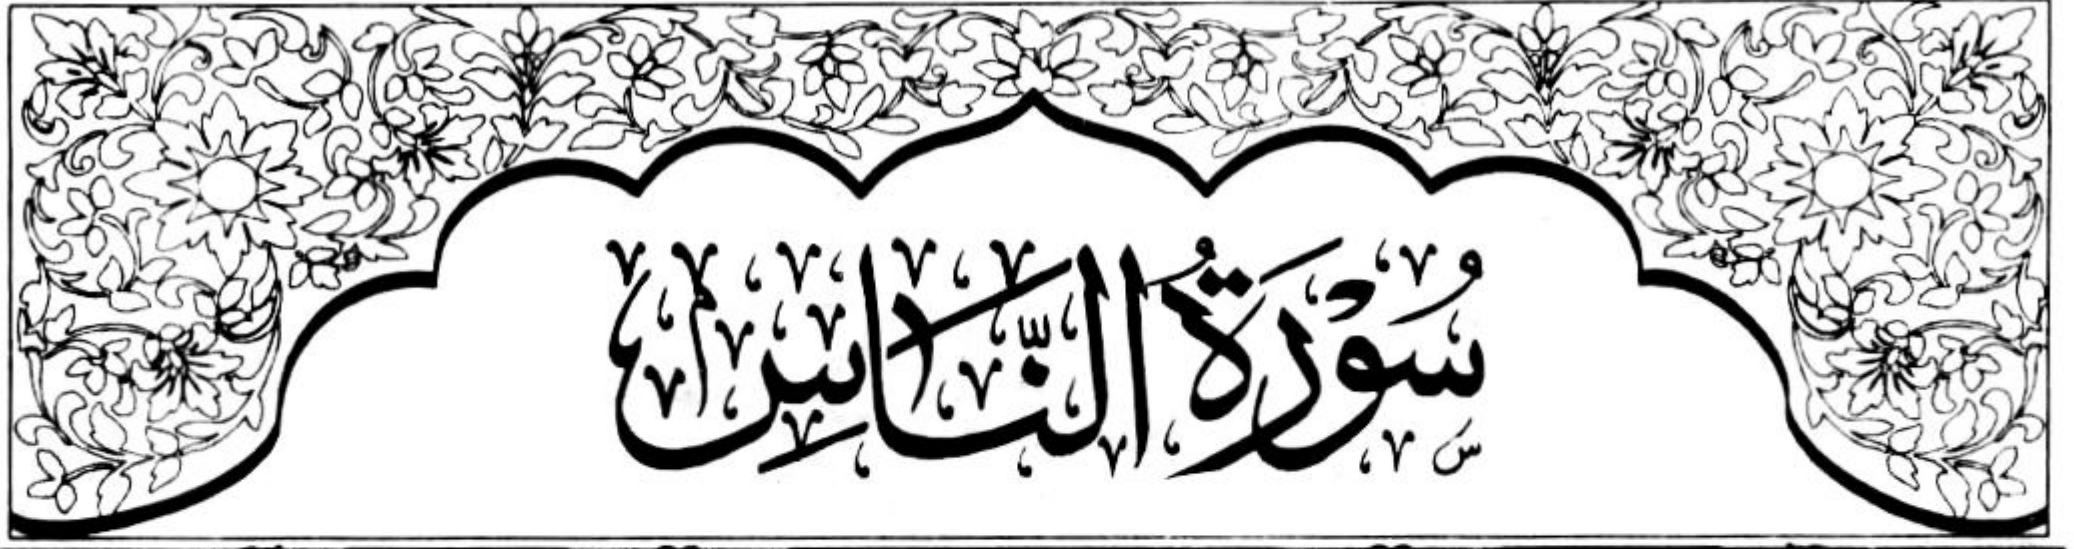 سُوْرَةُ النَّاسِ